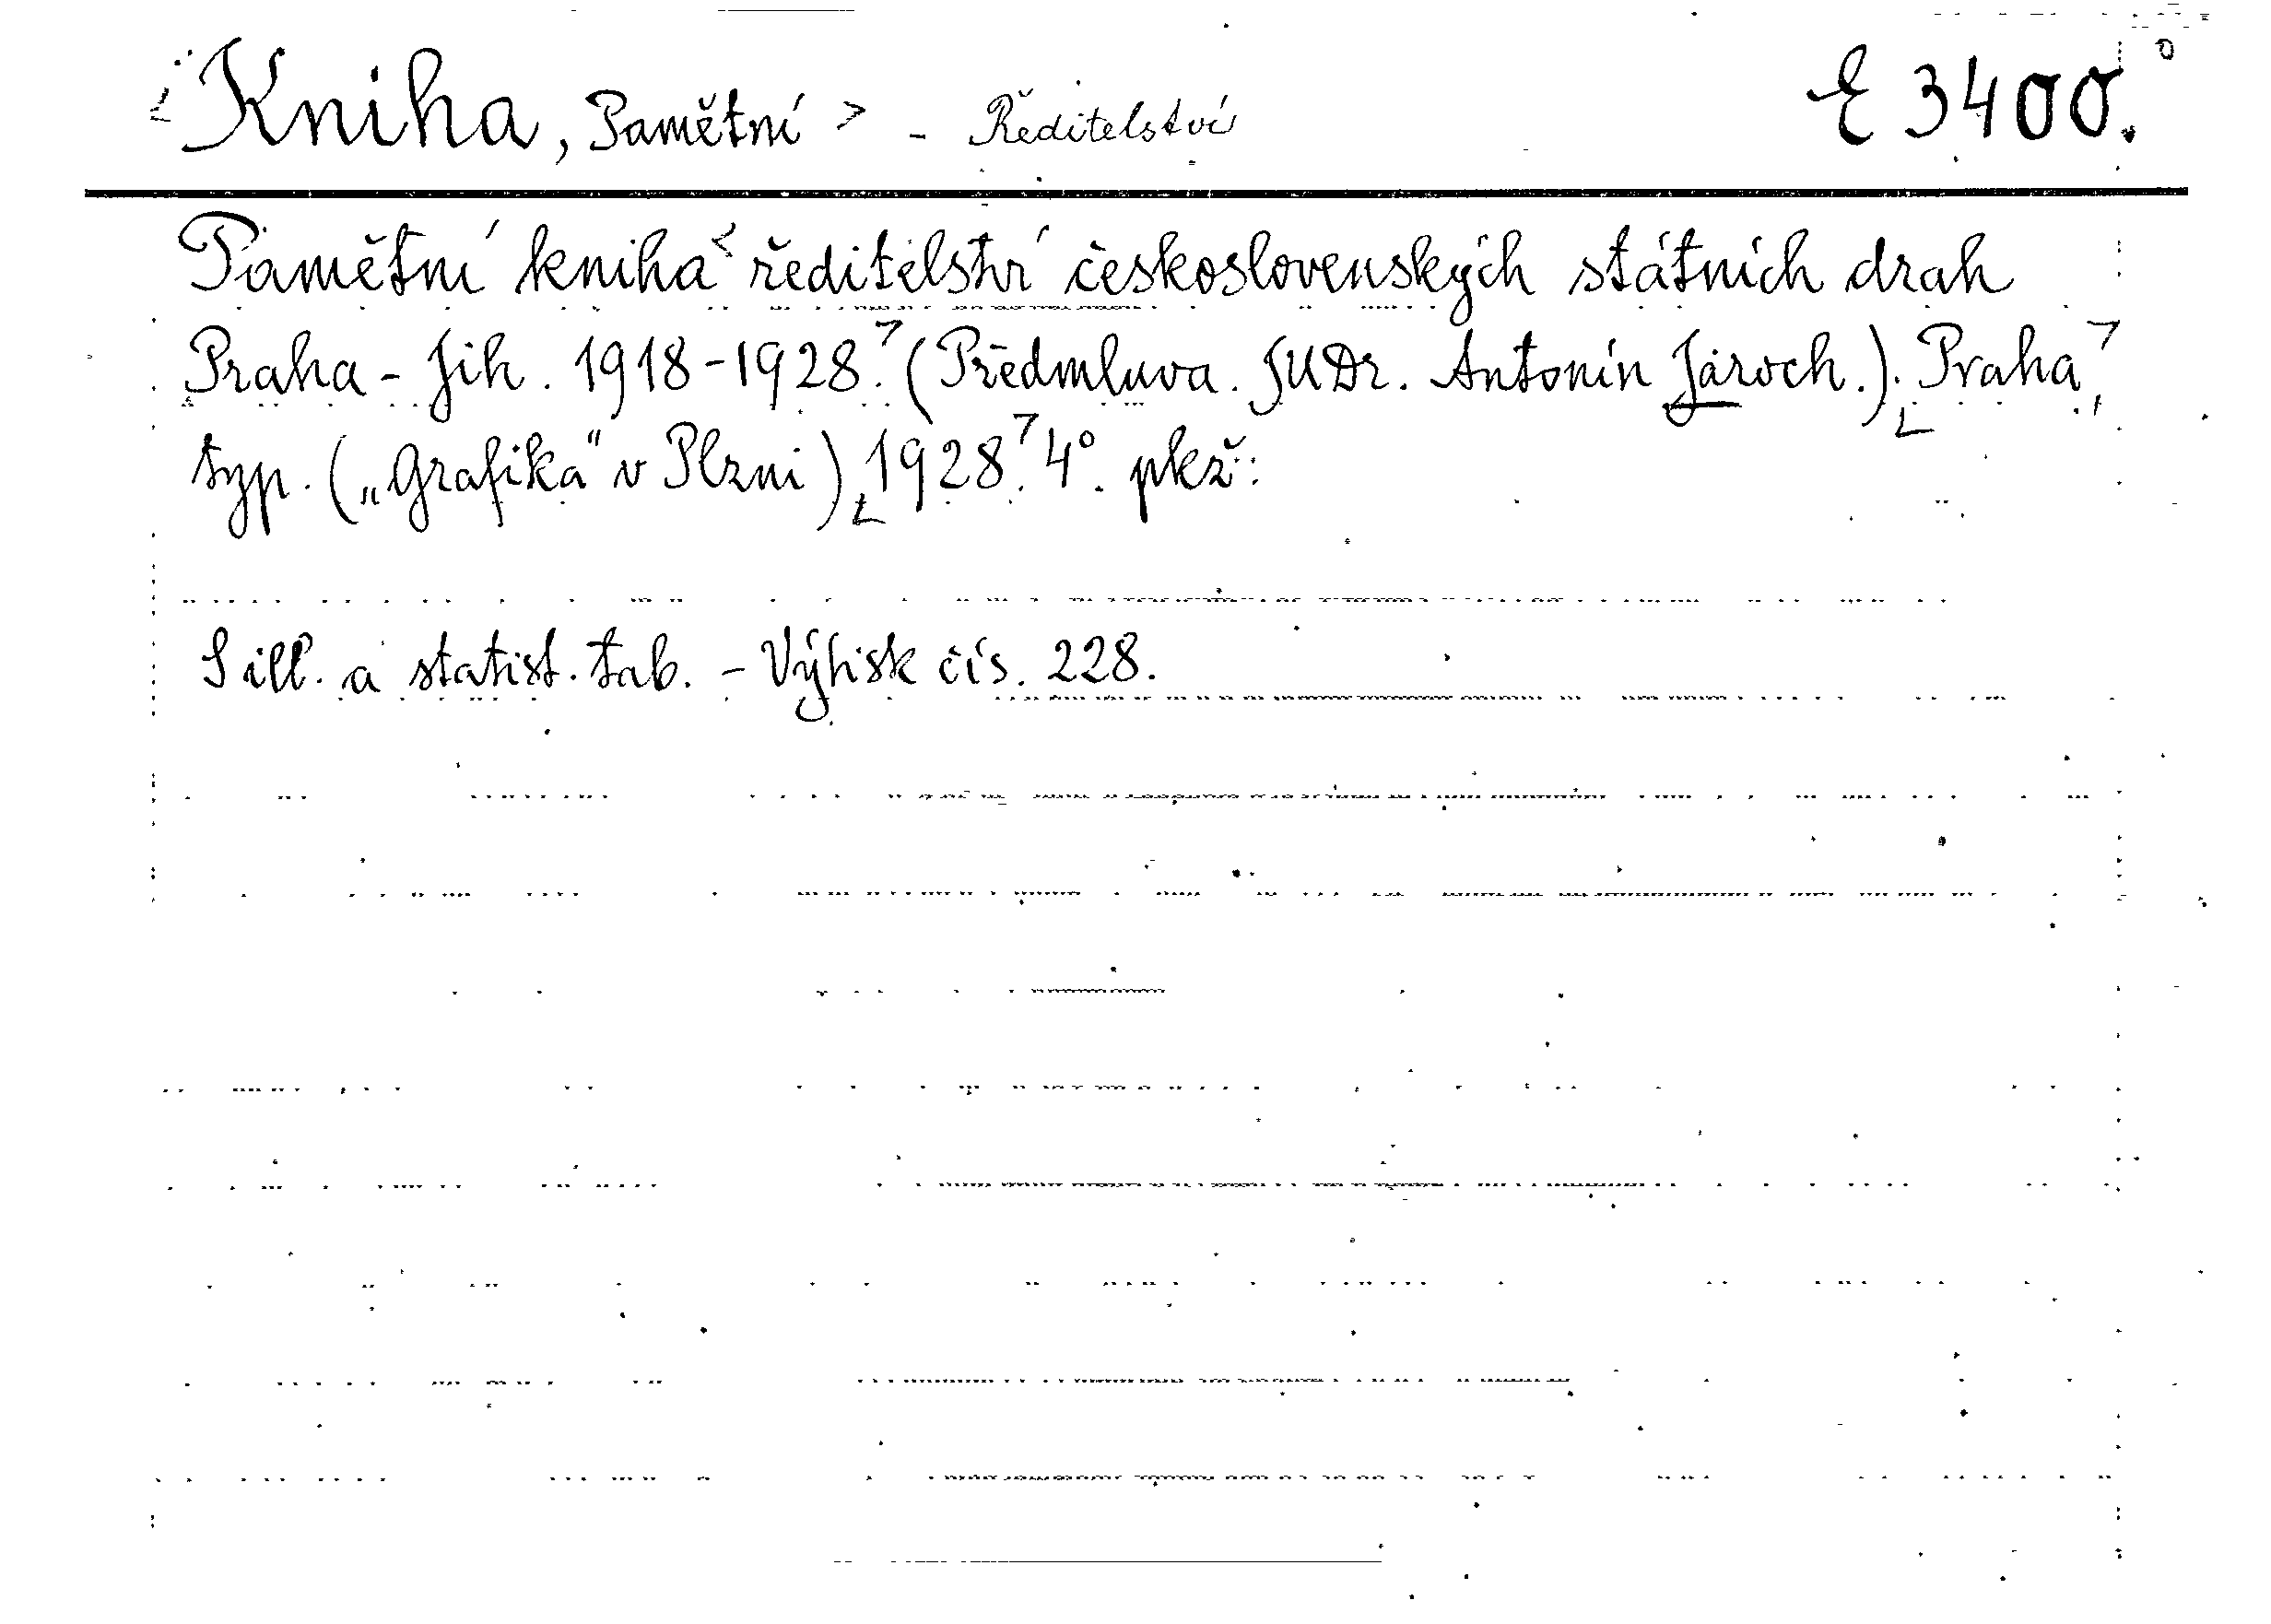 Kniha, Pamětní > - Ředitelství E 3400.
Pamětní kniha ředitelství československých státních drah
Praha - Jih. 1918-1928. (Předmluva. JUDr. Antonín Jároch.). Praha,
typ. („Grafika“ v Plzni) 1928. 4°. pkž.
S ill. a statist. tab. - Výtisk čís. 228.